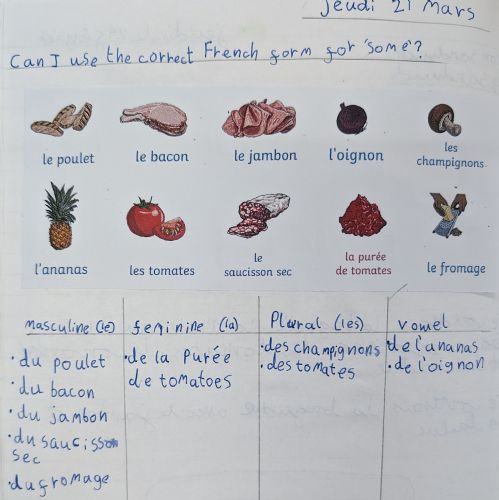 Jeudi 21 Mars
Can I use the correct French form for 'some'?
le poulet
le bacon
le jambon
l'oignon
les
champignons
l'ananas
les tomates
le
saucisson sec
la purée
de tomates
le fromage
masculine (le)
feminine (la)
Plural (les)
vowel
• du poulet
• du bacon
• du jambon
• du saucisson
sec
• du fromage
• de la Purée
de tomatoes
• des champignons
• des tomates
de l'ananas
• de l'oignon